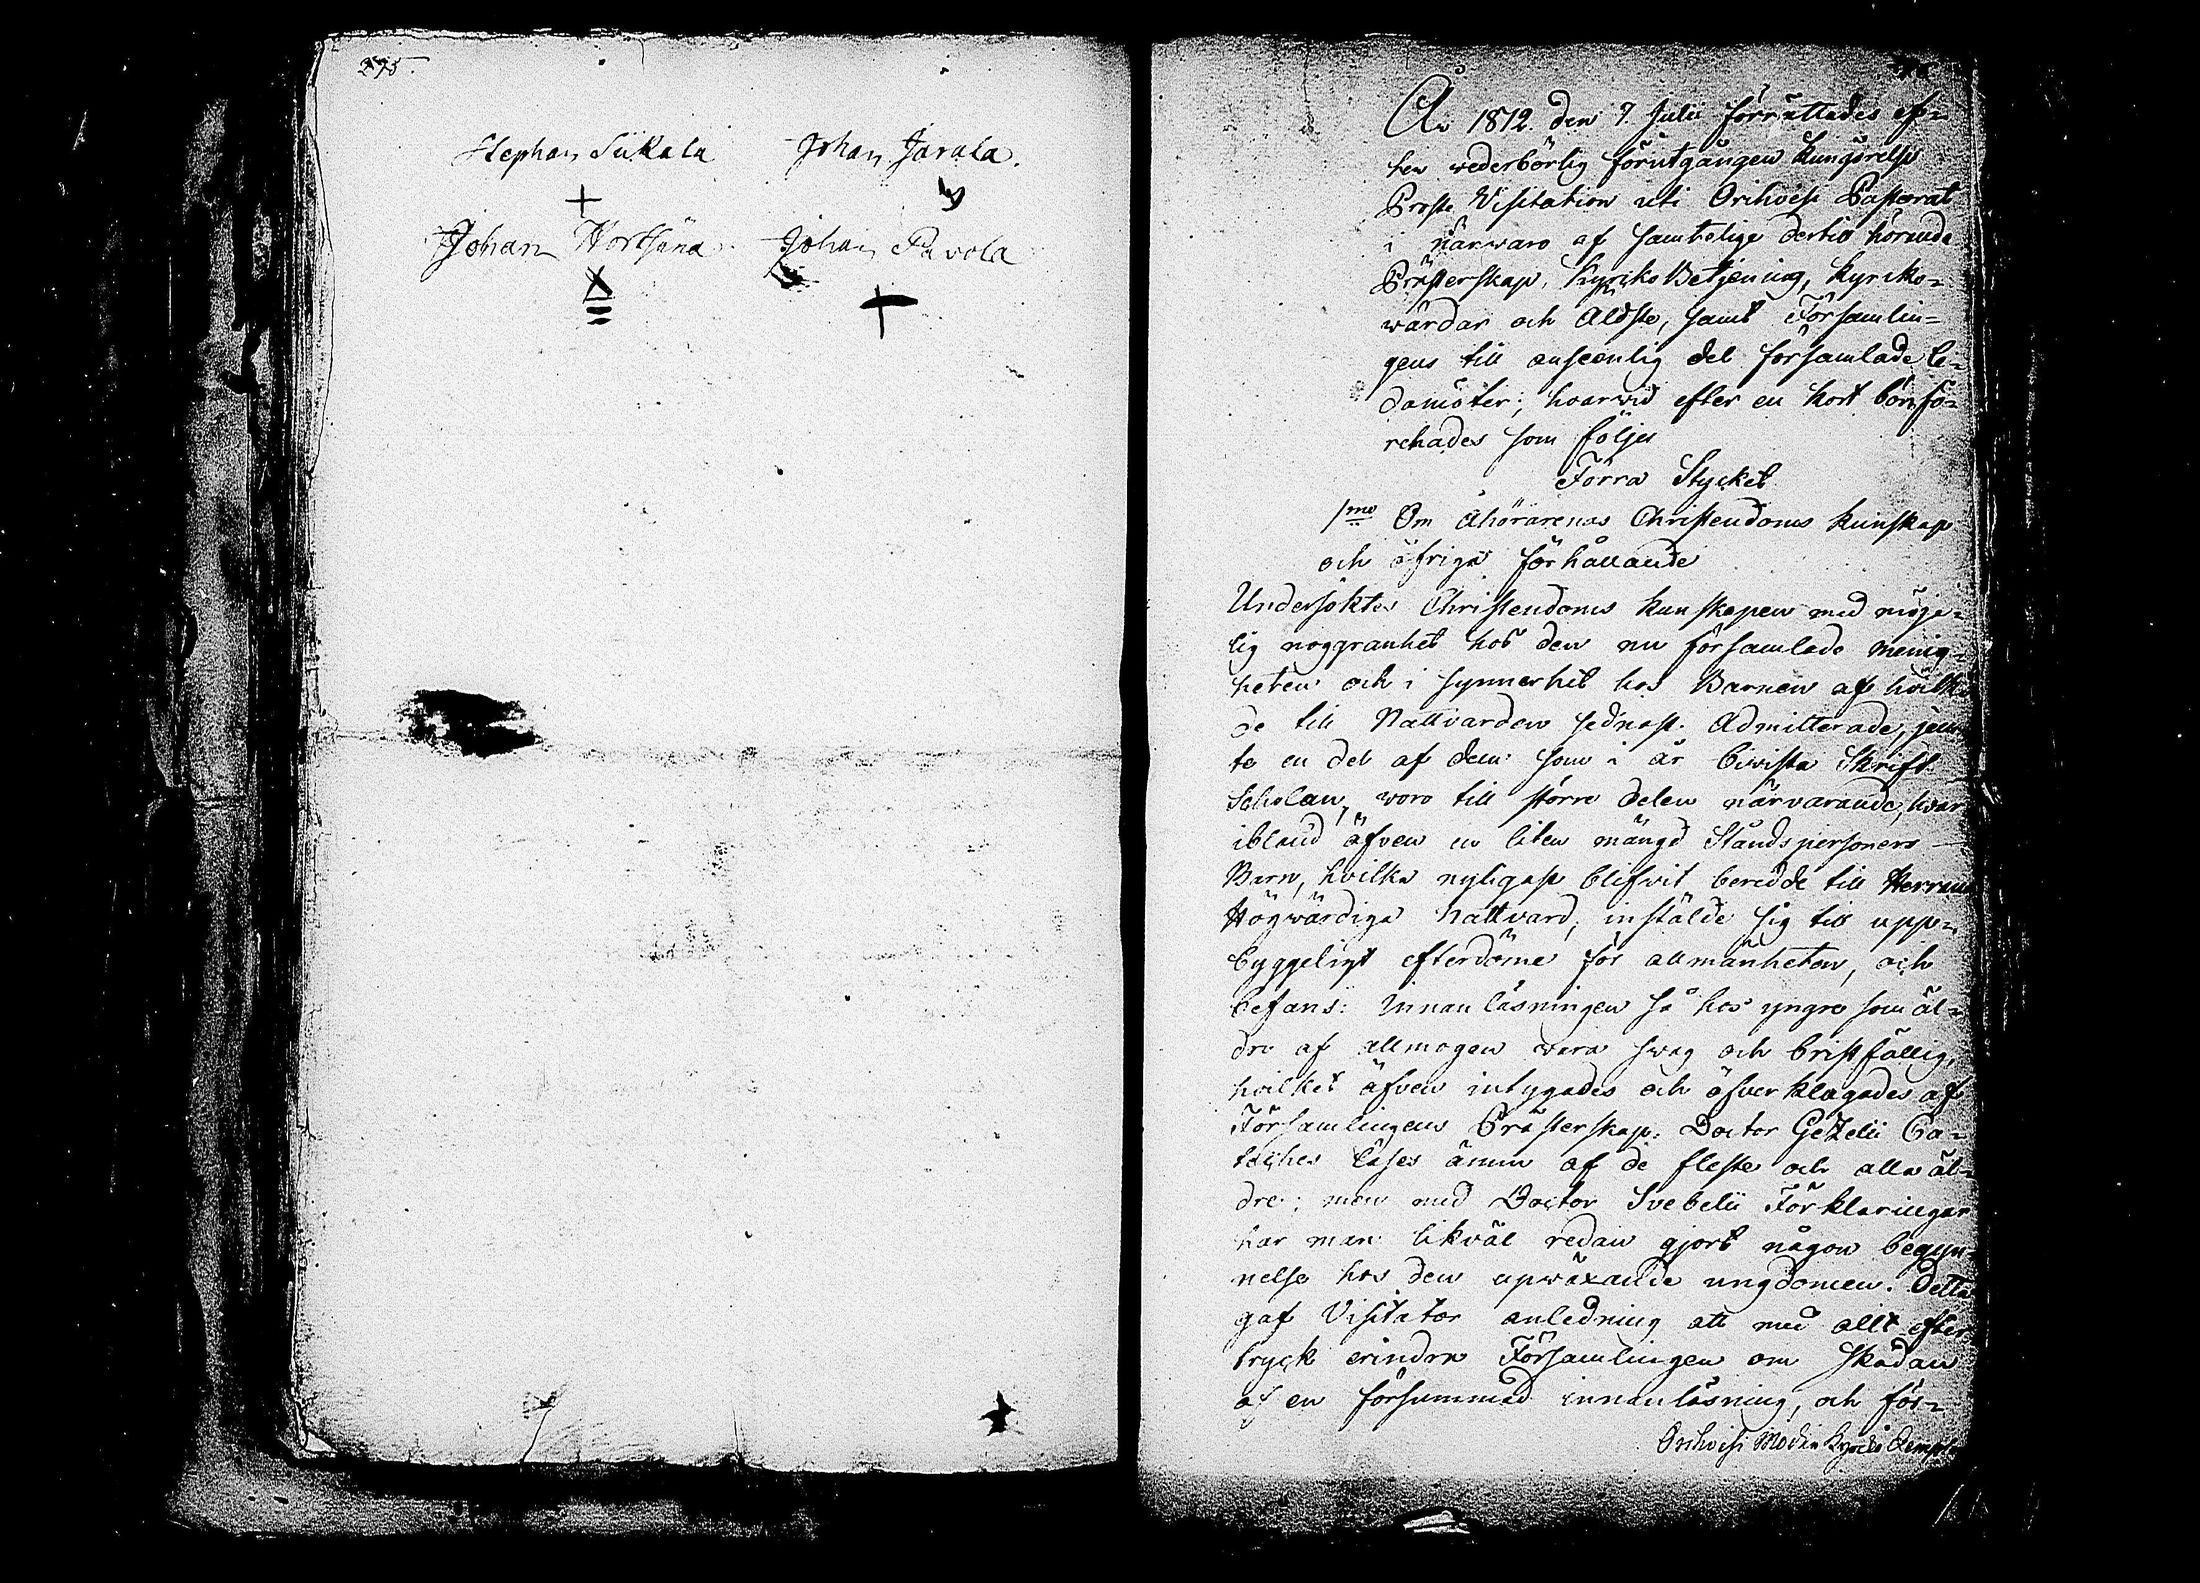 275.
Stephan Siikala Johan Jarala.
Johan Hortsana Johan Pavola
År 1812. den 7. Julii förrättades ef-
ter vederbörlig förutgången Kungörelse
Prosts Visitation uti Orihvesi Pastorat
i närwaro af samtelige dertill hörande
Prästerskap, Kyrcko Betjening, Kyrcko-
wärdar och Äldste, samt Församlin-
gens till anseenlig del församlade le-
damöter; hvarvid efter en kort bön fö-
rehades som följer
Förra Stycket
1mo Om Åhörarenas Christendoms kunskap
och öfriga förhållande
Undersöktes Christendoms kunskapen med möje-
lig noggranhet hos den nu församlade menig-
heten och i synnerhet hos Barnen af hvilka
de till Nattvarden sednast Admitterade, jem-
te en del af dem som i år bivista Skrift
Scholan, woro till större delen närvarande, hvar
ibland äfven en liten mängd Ståndspersoners
Barn, hvilka nyligast blifwit beredde till Herrans
Högwärdiga Nattvard, instälde sig till upp-
byggeligt efterdöme för allmänheten, och
befans: Innanläsningen så hos yngre som äl-
dre af allmogen wara swag och bristfällig,
hvilket äfven intygades och öfverklagades af
Församlingens Prästerskap. Doctor Gezelii Ca-
teches läses ännu af de fleste och alla äl-
dre; men med Doctor Svebelii Förklaringar
har man likväl redan gjort någon begyn-
nelse hos den upwäxande ungdomen. Detta
gaf Visitator anledning att med allt efter-
tryck erindra Församlingen om skadan
af en försummad innanläsning, och för-
Orihvesi Moder Kyrcko